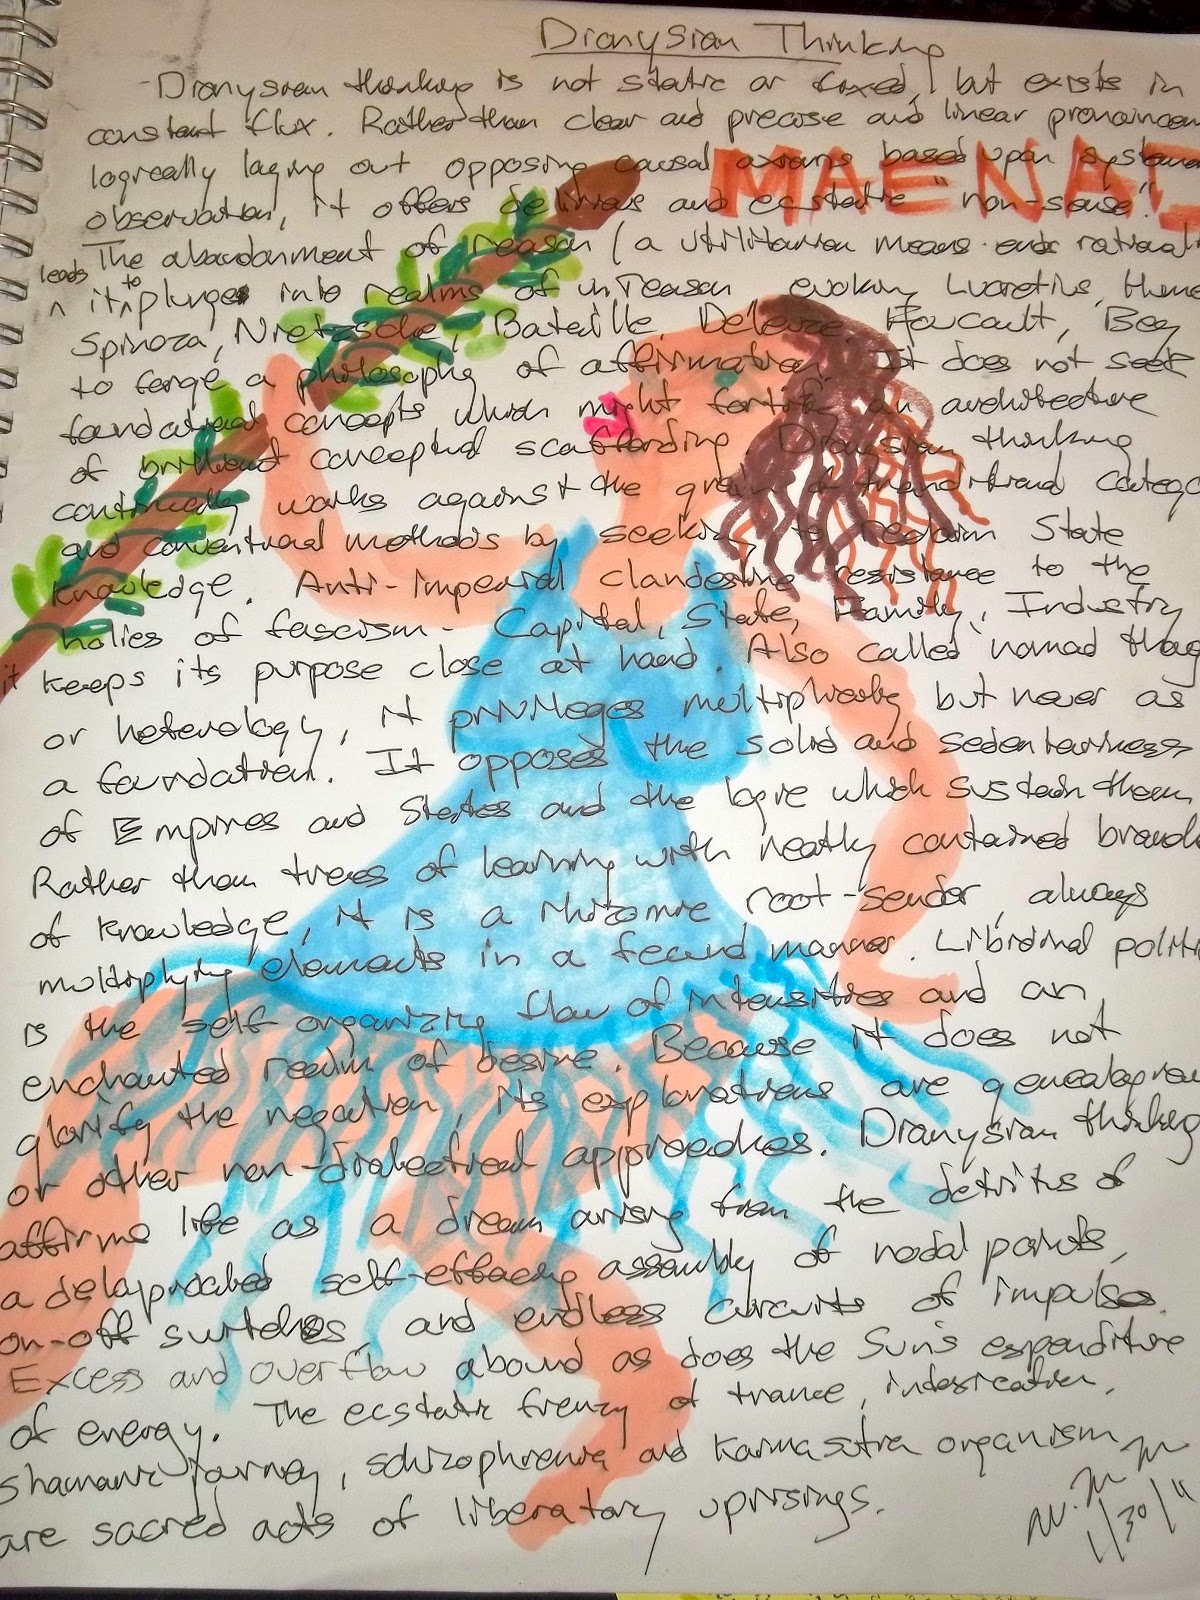 Dionysian Thinking
- Dionysian thinking is not static or fixed, but exists in
constant flux. Rather than clear and precise and linear
logically laying out opposing causal axioms based upon
MAENAD
observation, it offers delirious and ecstatic "non-sense".
The abandonment of reason (a utilitarian means
leads to
it plunges into realms of unreason evoking Lucretius,
Spinoza, Nietzsche, Bataille, Deleuze, Foucault, Bey
to forge a philosophy of affirmation. It does not seek
foundational concepts which might fortify an architecture
of brilliant conceptual scaffolding. Dionysian thinking
continually works against the grain of traditional
and conventional methods by seeking to State
knowledge. Anti-imperial clandestine resistance to the
holies of fascism - Capital, State, Family, Industry
it keeps its purpose close at hand. Also called "nomad
or heterology, it privileges multiplicity but never as
a foundation. It opposes the solid and sedentariness
of Empires and States and the logic which sustain them.
Rather than trees of learning with neatly contained
of knowledge, it is a rhizomic root-sender, always
multiplying elements in a fecund manner. Libidinal
is the self organizing flow of intensities and an
enchanted realm of desire. Because it does not
glorify the negation, its explorations are
or other non-dialectical approaches. Dionysian thinking
affirms life as a dream arising from the detritus of
a delapidated self-effacing assembly of nodal points,
on-off switches and endless circuits of impulse.
Excess and overflow abound as does the Sun's expenditure
of energy. The ecstatic frenzy of trance, intoxication,
shamanic journey, schizophrenia and Kama sutra organism
are sacred acts of liberatory uprisings.
1/30/11